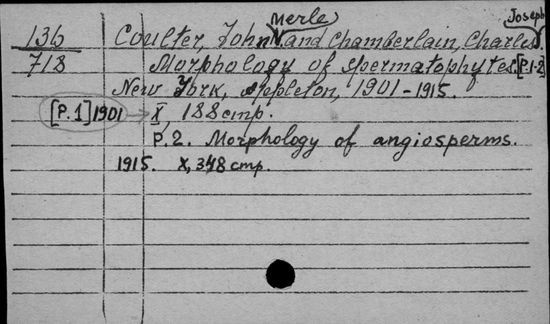 Merle Joseph
136 Coulter, John and Chamberlain, Charles.
718 Morphology of spermatophytes. [P.1-2]
New York, Appleton, 1901-1915.
[P.1] 1901 X, 188 стр.
P.2. Morphology of angiosperms.
1915. X, 348 стр.